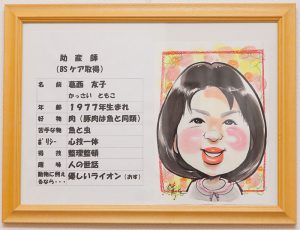 助産師
(BSケア取得)
名前 葛西 友子
かっさい ともこ
年齢 1977年生まれ
好物 肉(豚肉は魚と同類)
苦手な物 魚と虫
ﾎﾟﾘｼｰ 心技一体
特技 整理整頓
趣味 人の世話
動物に例え
るなら・・・ 優しいライオン(おす)